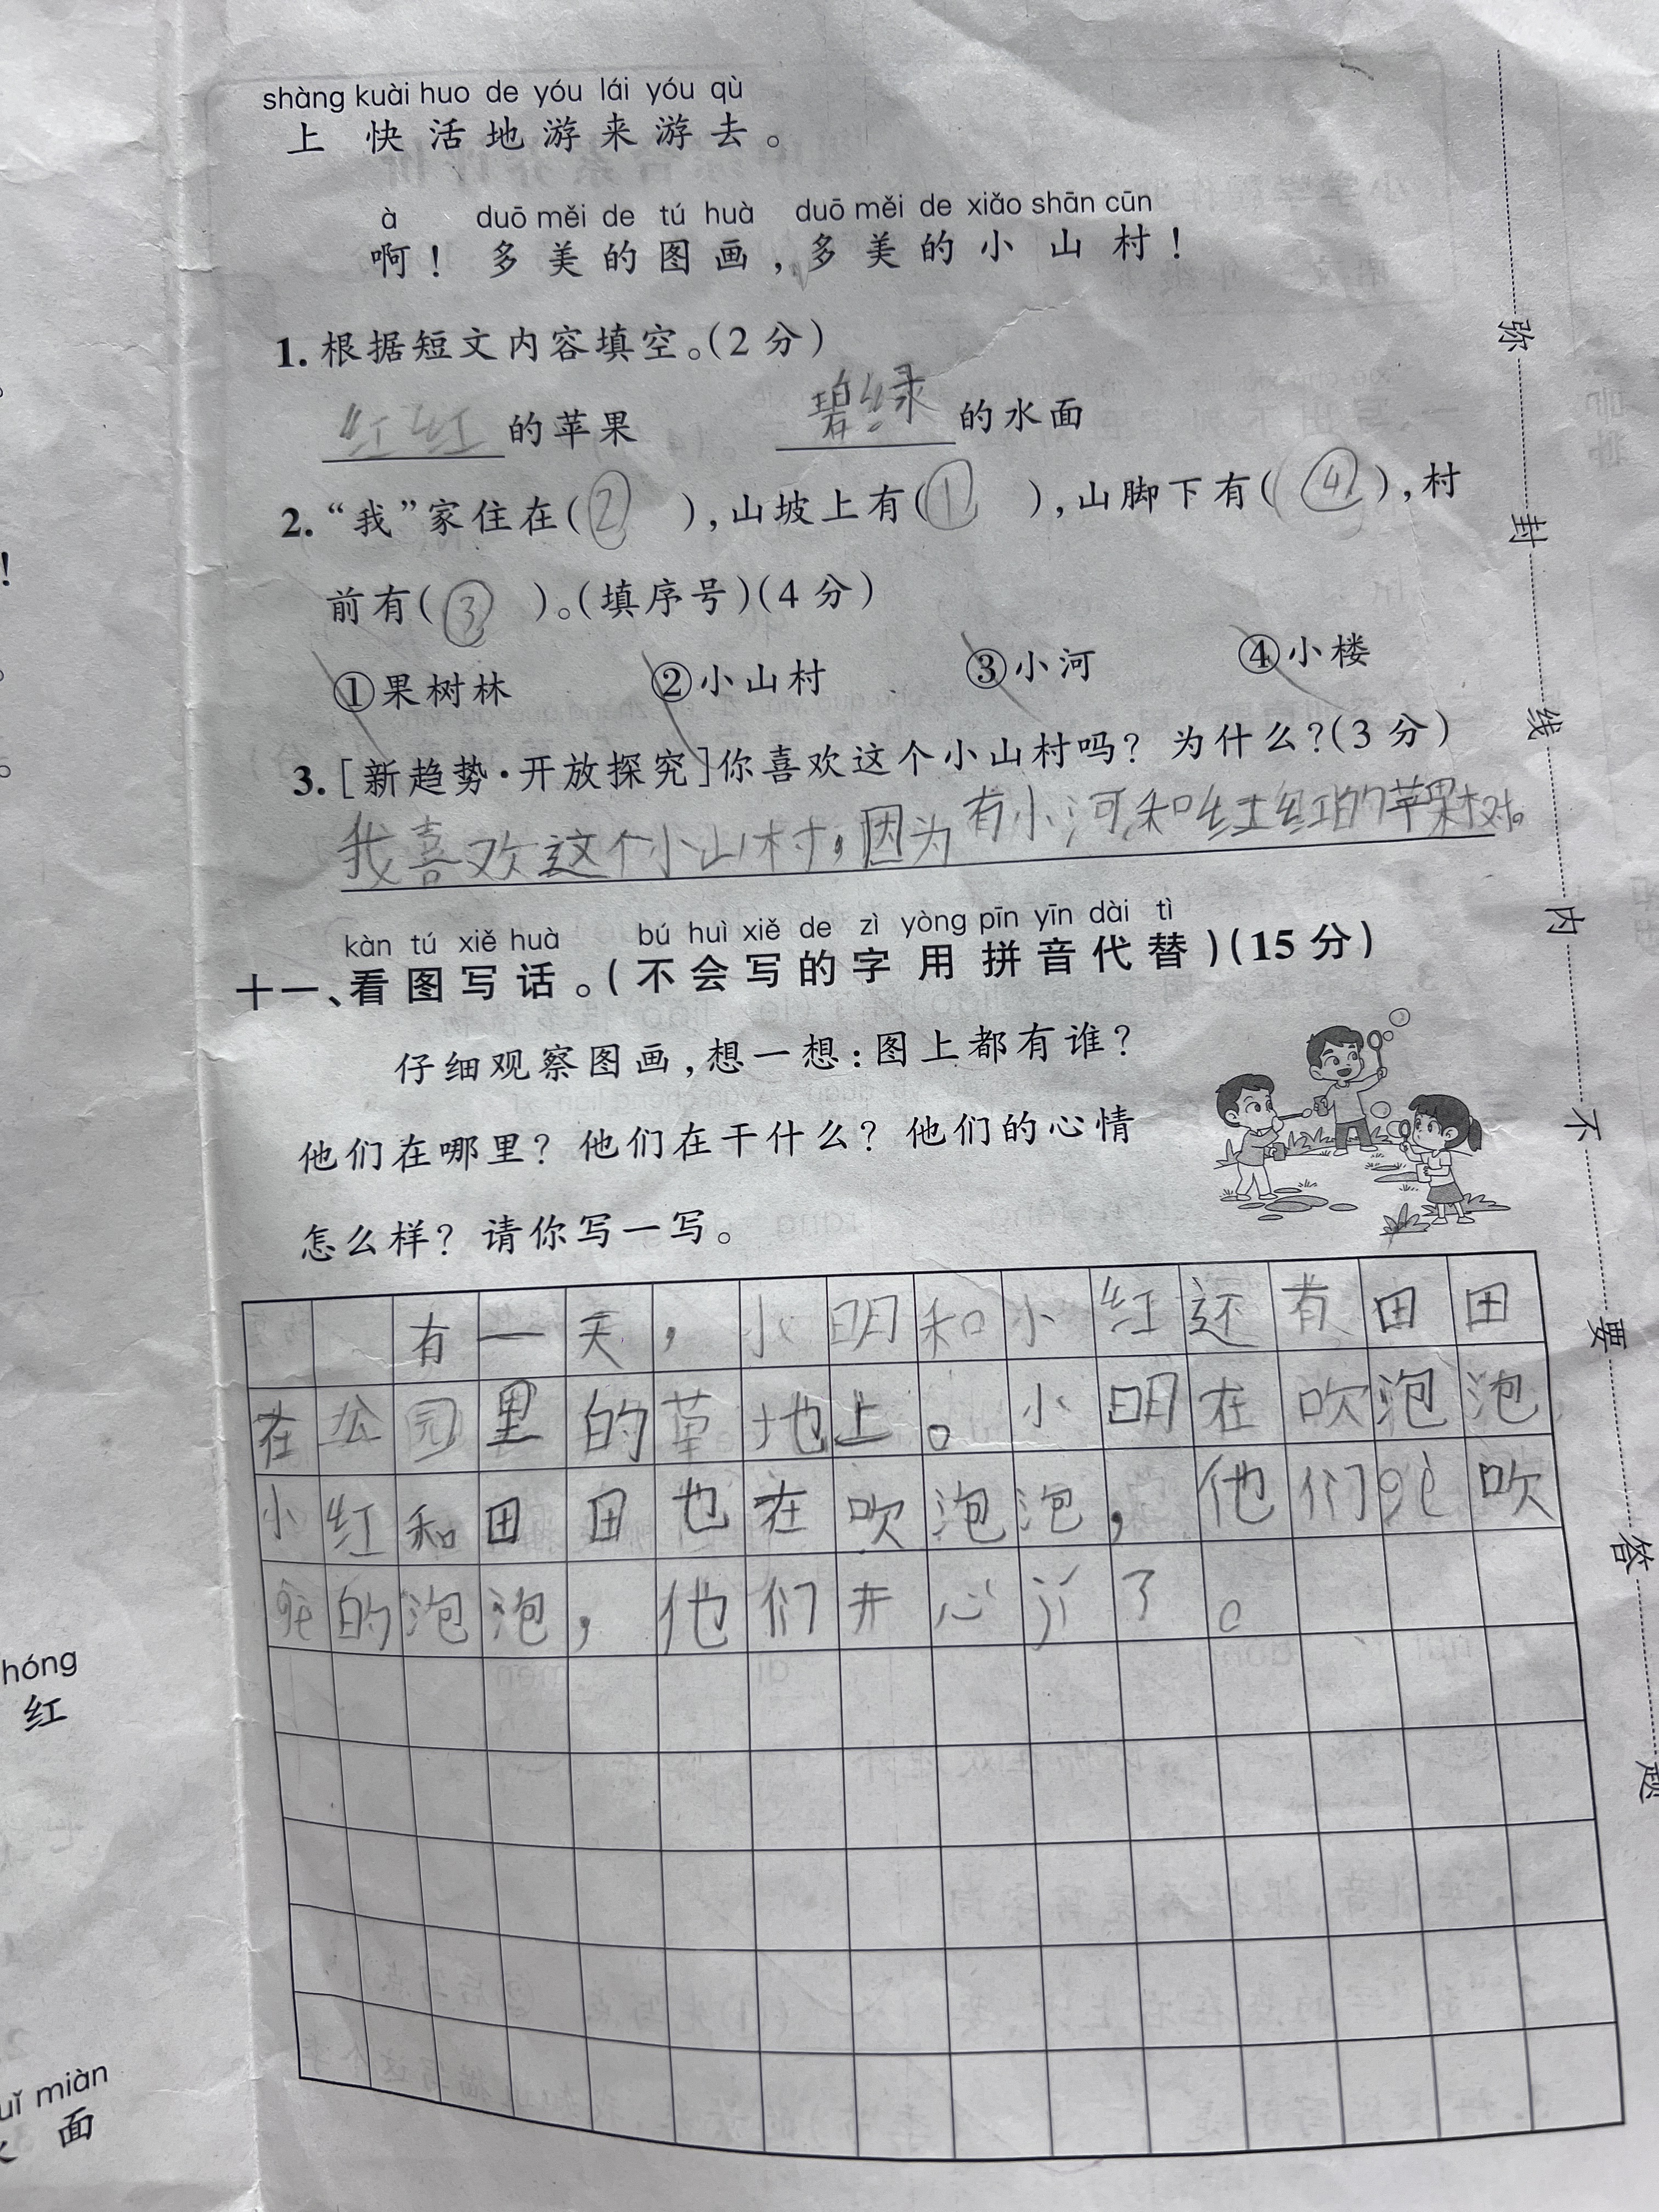 shàng kuài huo de yóu lái yóu qù
上快活地游来游去。
à duō měi de tú huà duō měi de xiǎo shān cūn
啊！多美的图画，多美的小山村！
1.根据短文内容填空。(2分)
红红的苹果 碧绿的水面
2.“我”家住在(② )，山坡上有(① )，山脚下有( ④ )，村
前有( ③ )。(填序号)(4分)
①果树林 ②小山村 ③小河 ④小楼
3.[新趋势·开放探究]你喜欢这个小山村吗？为什么？(3分)
我喜欢这个小山村，因为有小河和红红的苹果树。
kàn tú xiě huà bú huì xiě de zì yòng pīn yīn dài tì
十一、看图写话。(不会写的字用拼音代替)(15分)
仔细观察图画，想一想：图上都有谁？
他们在哪里？他们在干什么？他们的心情
怎么样？请你写一写。
有一天，小明和小红还有田田
在公园里的草地上。小明在吹泡泡，
小红和田田也在吹泡泡，他们吹
的泡泡，他们开心了。
弥封线内不要答题
hóng
红
uǐ miàn
面